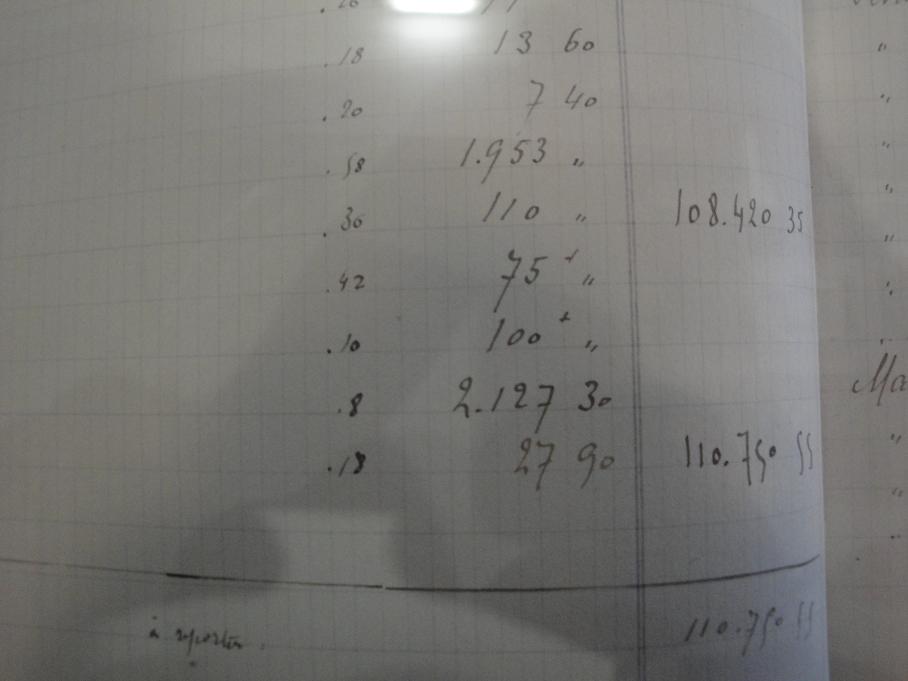 .18 13 60
.20 7 40
.58 1.953 "
.30 110 " 108.420 35
.42 75 + "
.10 100 + "
.8 2.127 30
.18 27 90 110.750 55
à reporter. 110.750 55
"
"
"
"
"
"
Ma
"
"
"